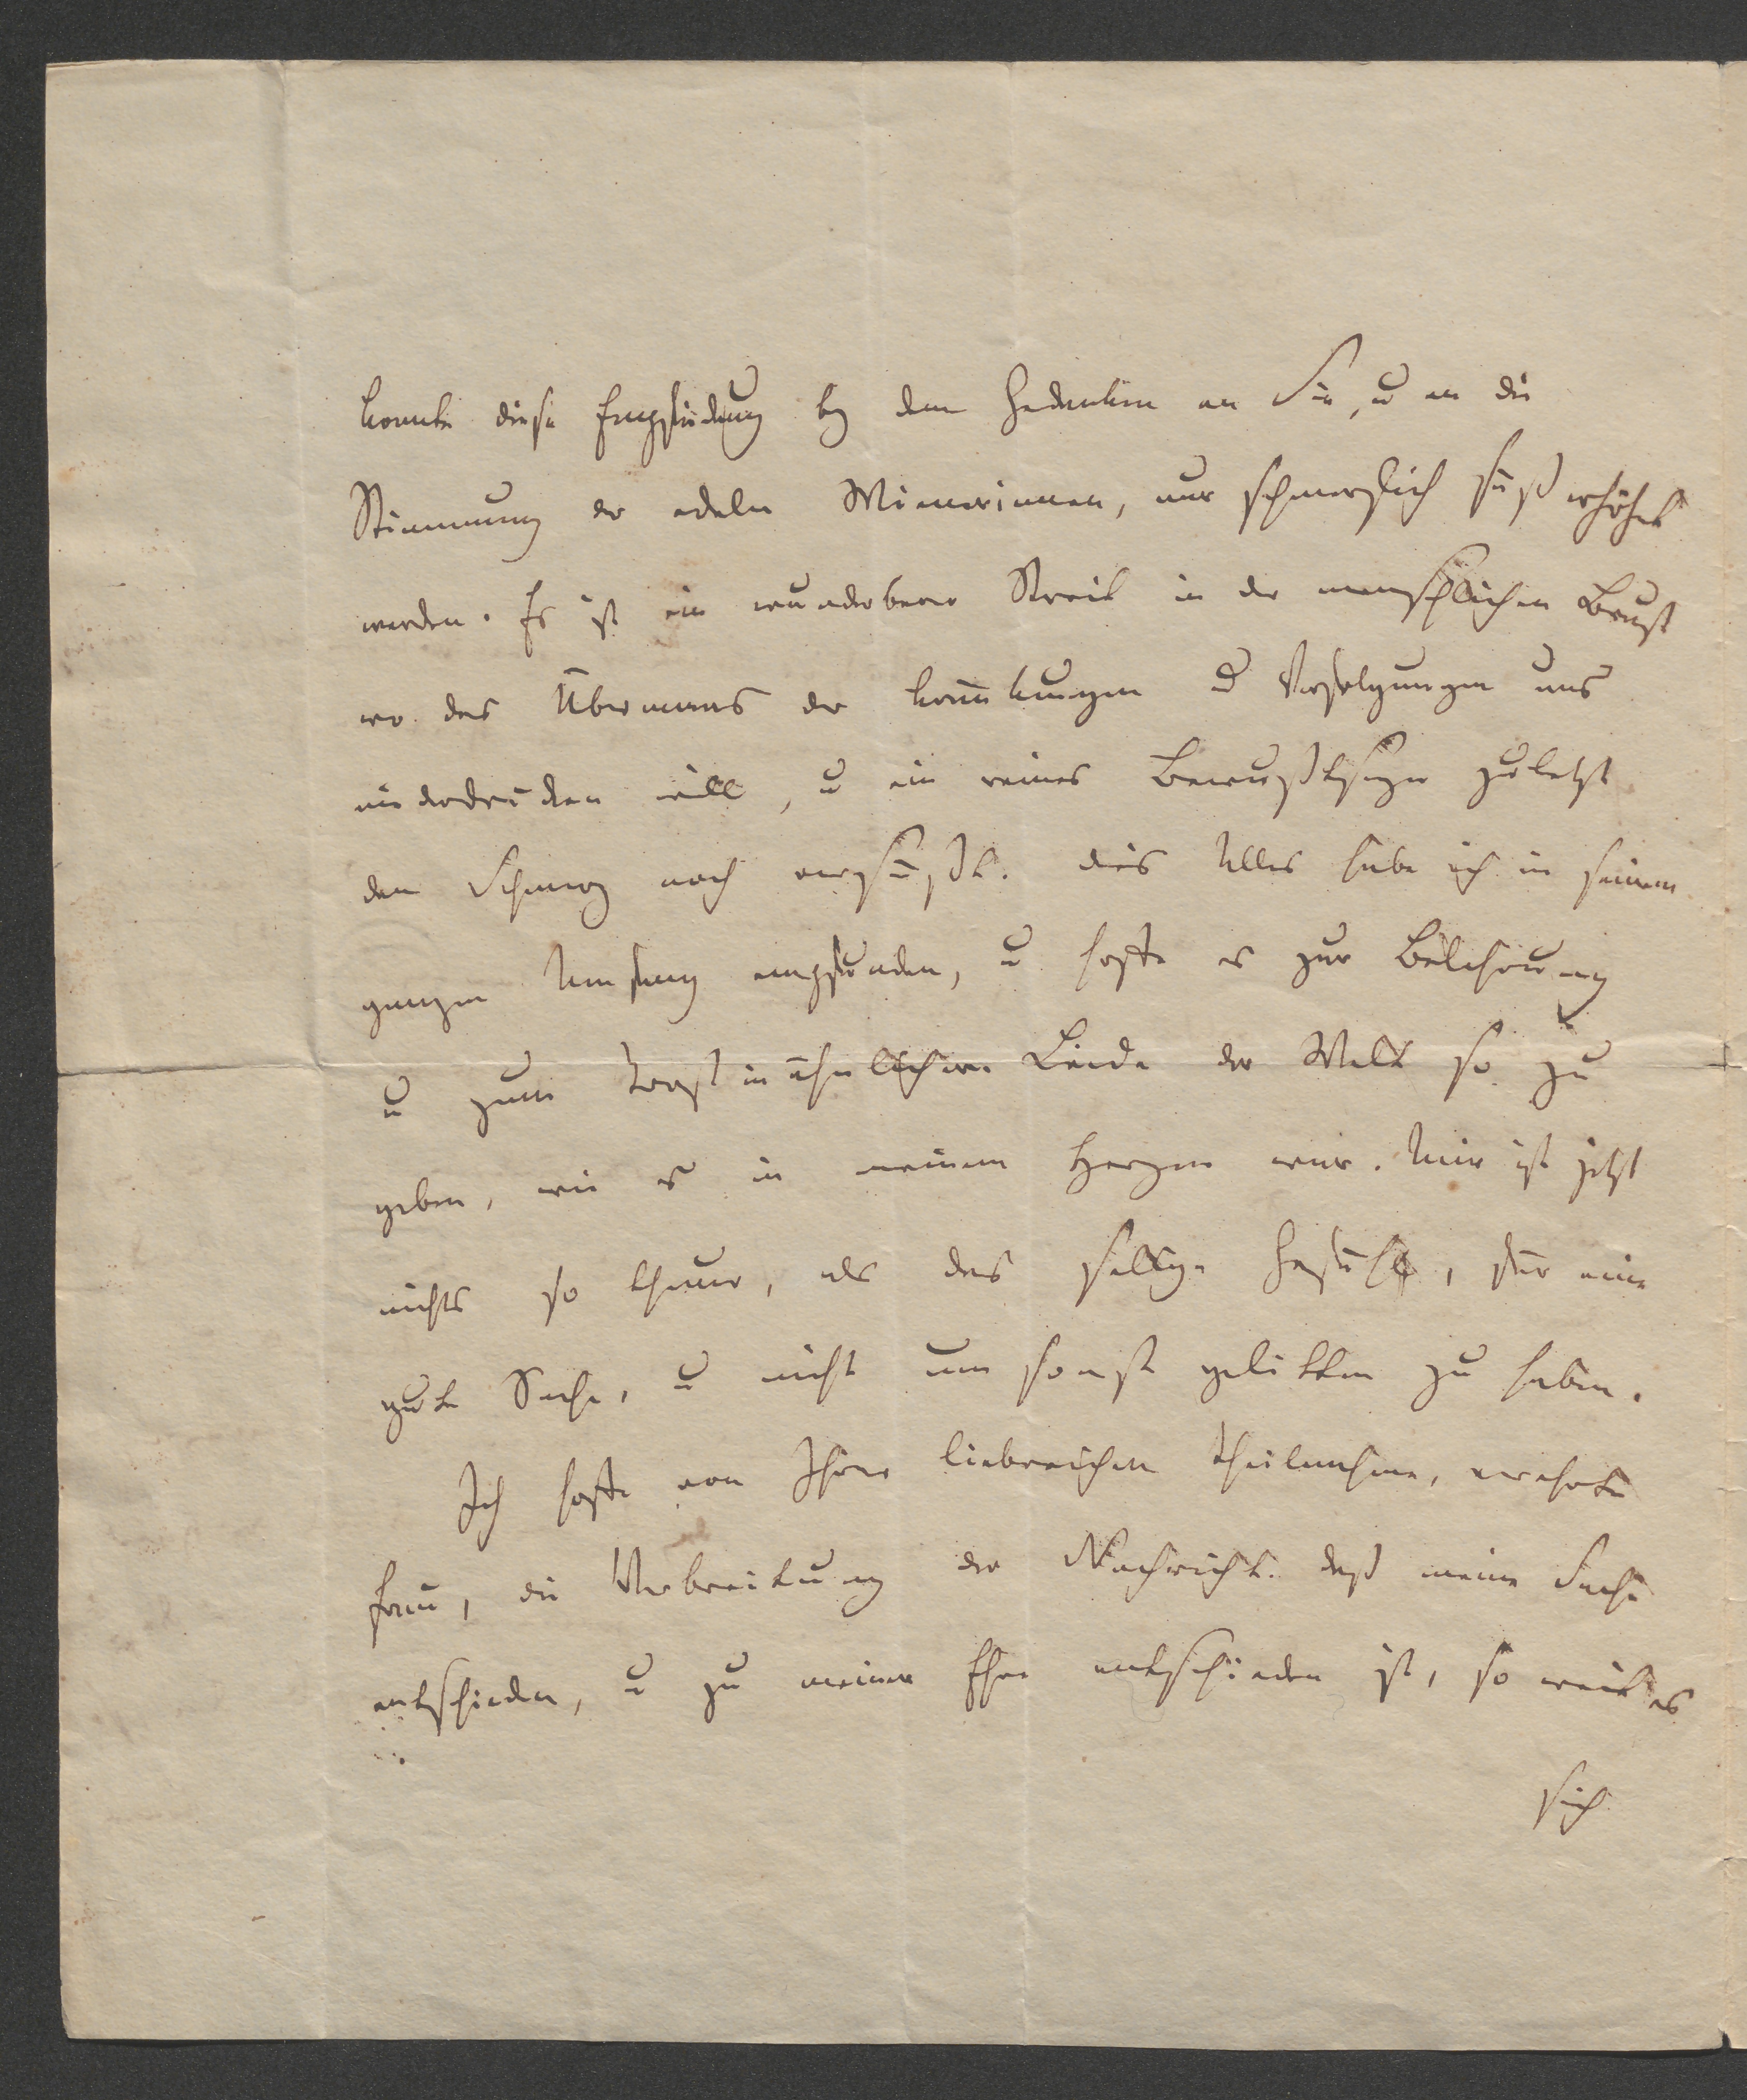 konnte diese Empfindung bey dem Gedanken an Sie, u an die
Stimmung der edeln Wienerinnen, nur schmerzlich süß erhöhet
werden. Es ist ein wunderbarer Streit in der menschlichen Brust
wo das Übermaas der Kränkungen u Verfolgungen uns
niederdrücken will, u ein reines Bewußtseyn zuletzt
den Schmerz noch versüßt. dies Alles habe ich in seinem
ganzen Umfang empfunden, u hoffe es zur Belehrung
u zum Trost in ähnlichem Leide der Welt so zu
geben, wie es in meinem Herzen war. Mir ist jetzt
nichts so theuer, als das selige Gefühl, für eine
gute Sache, u nicht um sonst gelitten zu haben.
Ich hoffe von Ihrer liebreichen Theilnahme, verehrte
Frau, die Verbreitung der Nachricht. daß meine Sache
entschieden, u zu meiner Ehre entschieden ist, so weit es
sich